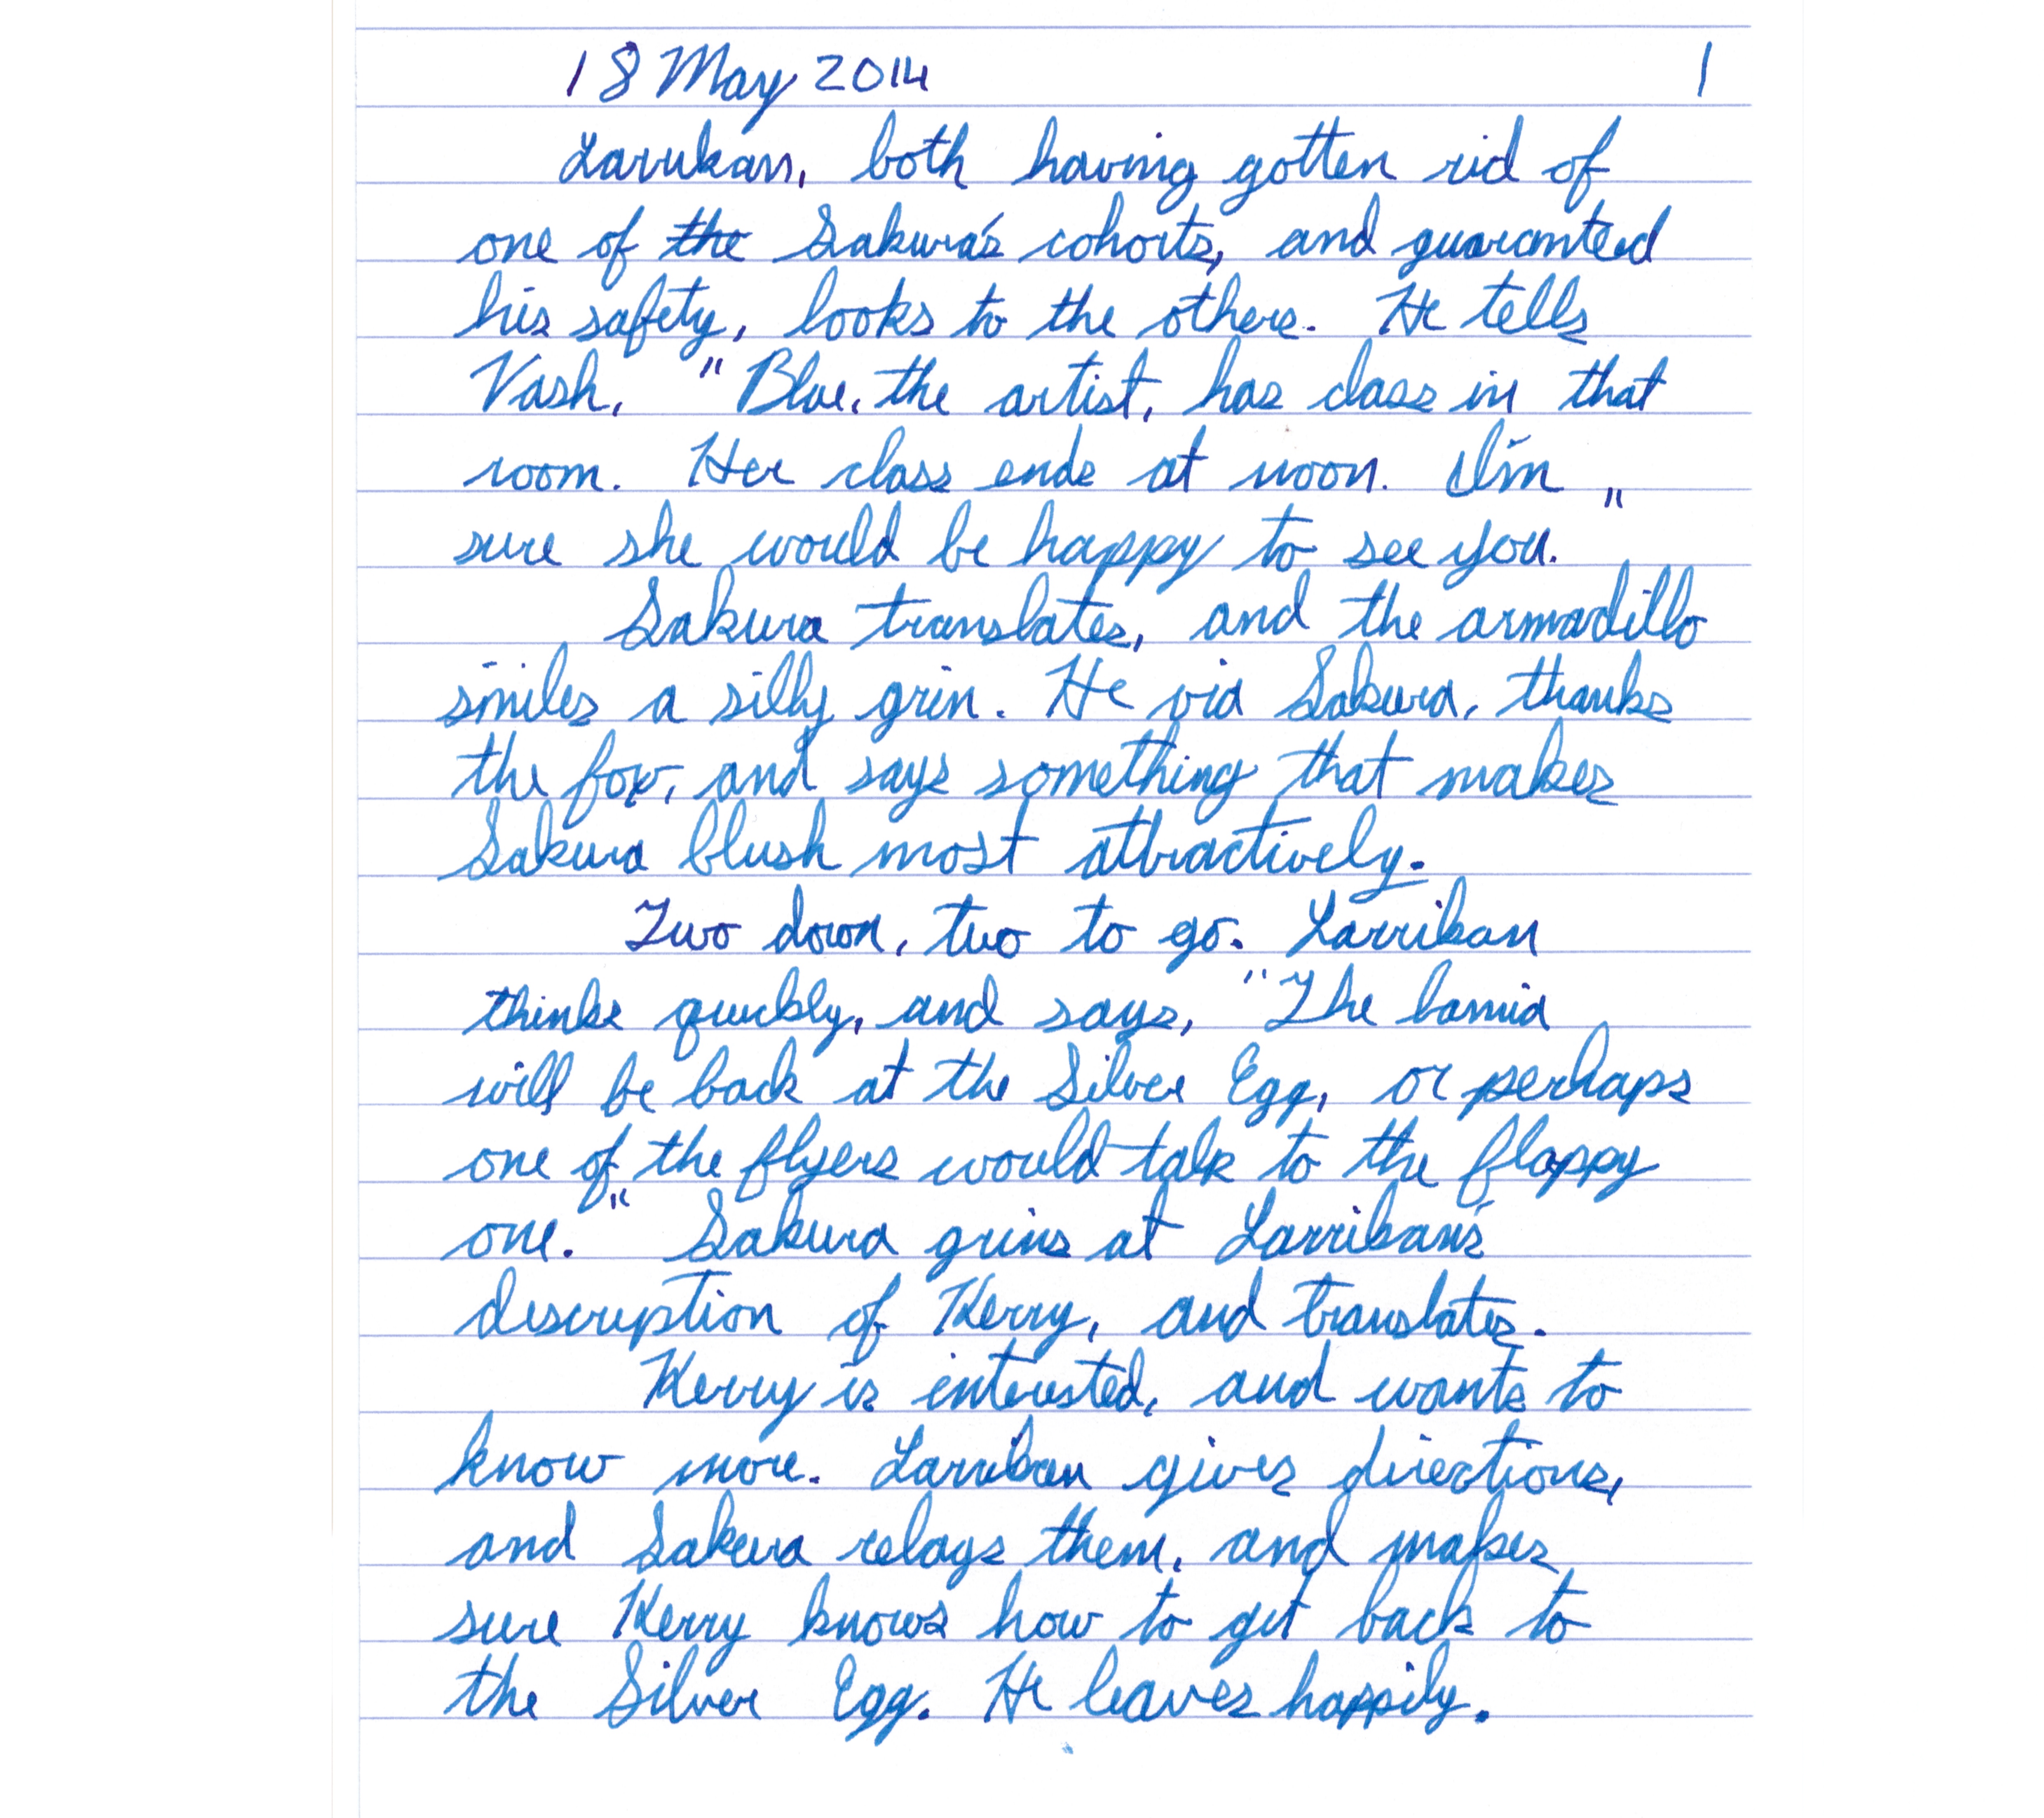 18 May 2014 1
Larrikan, both having gotten rid of
one of the Sakura's cohorts, and guaranteed
his safety, looks to the others. He tells
Vash, "Blue, the artist, has class in that
room. Her class ends at noon. I'm
sure she would be happy to see you."
Sakura translates, and the armadillo
smiles a silly grin. He via Sakura, thanks
the fox, and says something that makes
Sakura blush most attractively.
Two down, two to go. Larrikan
thinks quickly, and says, "The lamia
will be back at the Silver Egg, or perhaps
one of the flyers would talk to the flappy
one." Sakura grins at Larrikan's
description of Kerry, and translates.
Kerry is interested, and wants to
know more. Larrikan gives directions,
and Sakura relays them, and makes
sure Kerry knows how to get back to
the Silver Egg. He leaves happily.